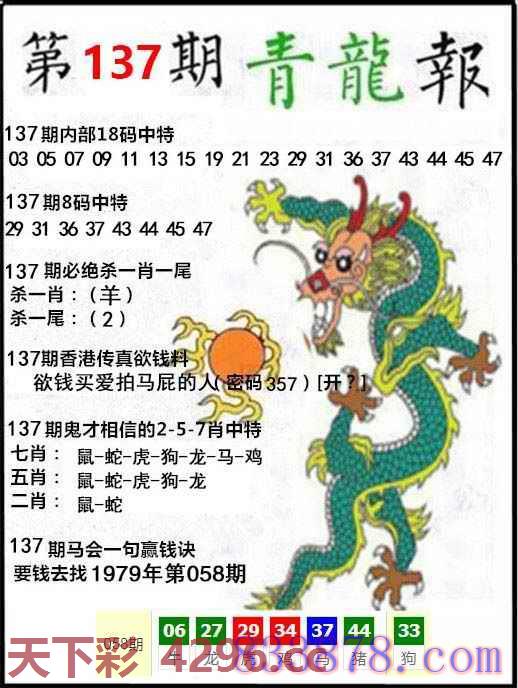 第137期青龍報
137期内部18码中特
03 05 07 09 11 13 15 19 21 23 29 31 36 37 43 44 45 47
137期8码中特
29 31 36 37 43 44 45 47
137期必绝杀一肖一尾
杀一肖：（羊）
杀一尾：（2）
137期香港传真欲钱料
欲钱买爱拍马屁的人（密码357）[开？]
137期鬼才相信的2-5-7肖中特
七肖：鼠-蛇-虎-狗-龙-马-鸡
五肖：鼠-蛇-虎-狗-龙
二肖：鼠-蛇
137期马会一句赢钱诀
要钱去找1979年第058期
058期 06 27 29 34 37 44 33
牛 龙 虎 鸡 马 猪 狗
天下彩 4296.cc